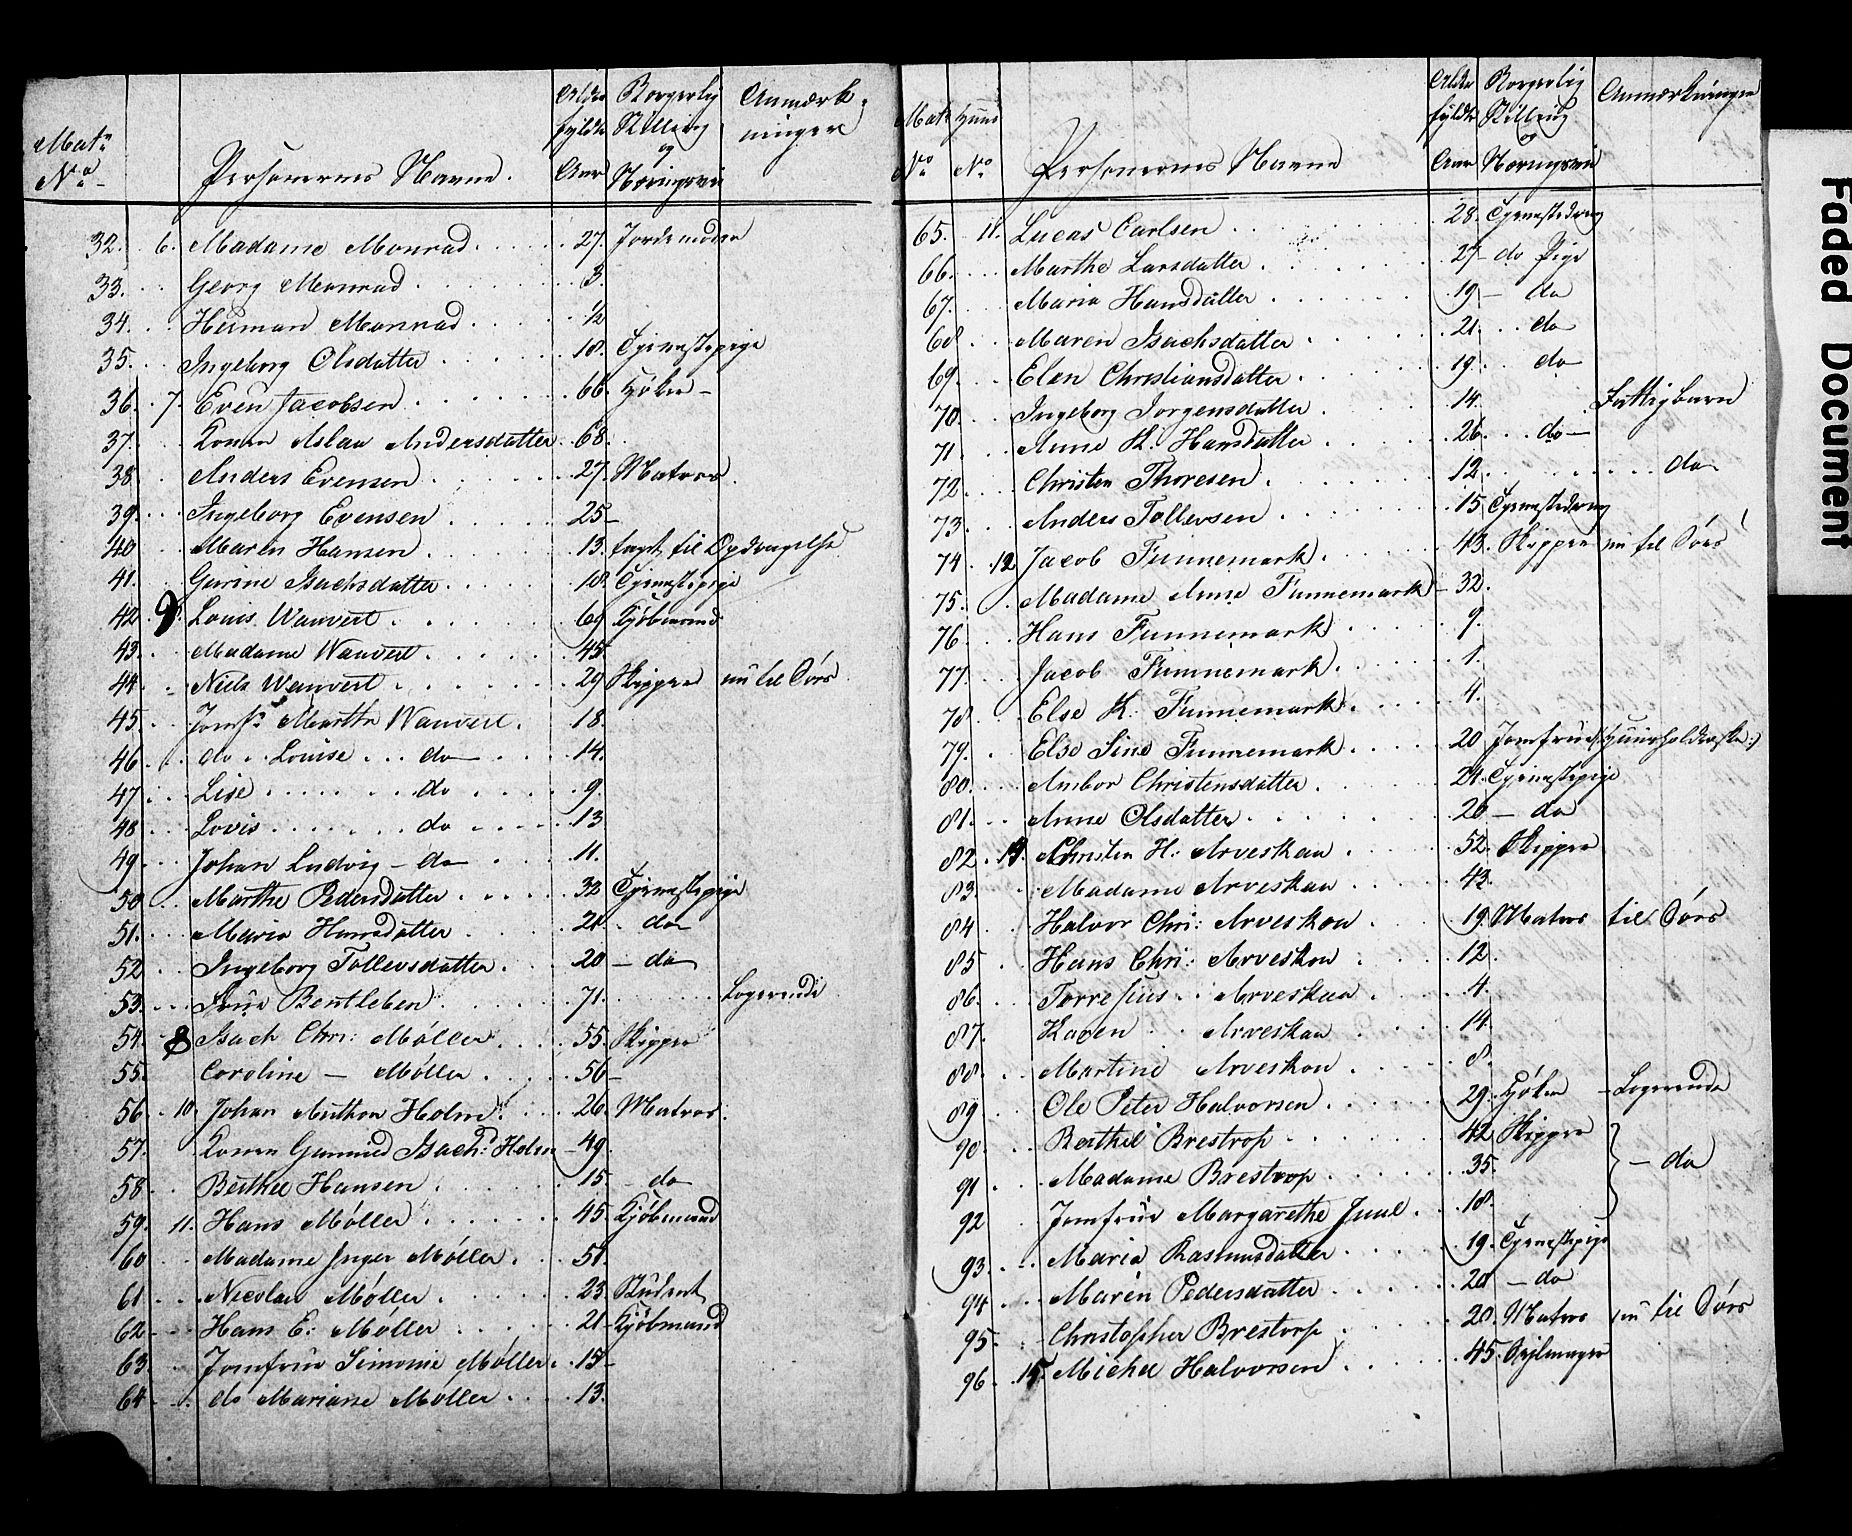 Matr No Personernes Navne. Alder fyldte Aar Borgerlig Stilling og Næringsvei Anmærkninger
32. 6. Madame Monrad 27. Jordemoder
33. Georg Monrad 3.
34. Herman Monrad ½
35. Ingeborg Olsdatter 18. Tjenestepige
36. 7. Even Jacobsen 66. Høker
37. Konen Aslau Andersdatter 68.
38. Anders Evensen 27. Matros
39. Ingeborg Evensen 25
40 Maren Hansen 13. til Opdragelse
41. Gurine Isachsdatter 18. Tjenestepige
42. 8. Louis Wauvert 69 Kjøbmand
43. Madame Wauvert 45
44. Niels Wauvert 29 Skipper nu til Søes
45. Jomfr Marthe Wauvert 18.
46. do Louise do 14.
47 Lise do 9.
48 Lovis do 13
49. Johan Ludvig do 11.
50. Marthe Pedersdatter 32 Tjenestepige
51. Maria Hansdatter 21 do
52. Ingeborg Tollevsdatter 20 do
53. Frue Bentleben 71. Logerende
54. Isach Chri: Møller 55. Skipper
55. Caroline Møller 56
56. 10. Johan Anthon Holm 26. Matros.
57. Konen Gunnild Isach: Holm 49.
58. Berthe Hansen 15 do
59. 11. Hans Møller 45. Kjøbmand
60. Madame Inger Møller 51.
61. Nicolai Møller 23. Student
62 Hans E: Møller 21 Kjøbmand
63. Jomfrue Simonie Møller 15
64 do Mariane Møller 13.
Matr No Huus No Personernes Navne Alder fyldte Aar Borgerlig Stilling og Næringsvei Anmærkninger
65. 11. Lucas Carlsen 28. Tjenestedreng
66. Marthe Larsdatter 27 do Pige
67. Maria Hansdatter 19 do
68 Maren Isachsdatter 21. do
69. Elen Christiansdatter 19. do
70. Ingeborg Jorgensdatter 14. Fattigbarn
71 Anne K. Hansdatter 26 do
72. Christen Thoresen 12. do
73. Anders Tollevsen 15. Tjenestedreng
74 12 Jacob Funnemark 43. Skipper nu til Søes
75. Madame Anne Funnemark 32.
76 Hans Funnemark 9.
77. Jacob Funnemark 1.
78 Else K: Funnemark 4.
79. Else Sine Funnemark 20 Jomfrue (:Huusholderske:)
80. Ambor Christensdatter 24. Tjenestepige
81. Anne Olsdatter 20 do
82. Christen H: Arveskau 52. Skipper
83. Madame Arveskau 43.
84. Halvor Chri: Arveskou 19. Matros til Søes
85 Hans Chri: Arveskou 12.
86. Torresius Arveskau 4.
87. Karen Arveskau 14.
88. Martine Arveskou 8.
89. Ole Peter Halvorsen 29. Høker Logerende
90. Berthel Brestrop 42. Skipper do
91 Madame Brestrop 35.
92 Jomfrue Margarethe Juul 18.
93. Maria Rasmusdatter 19. Tjenestepige
94. Maren Pedersdatter 20 do
95. Christopher Brestrop 28. Matros nu til Søes
96. 15. Michel Halvorsen 45. Sejlmager
Faded Document